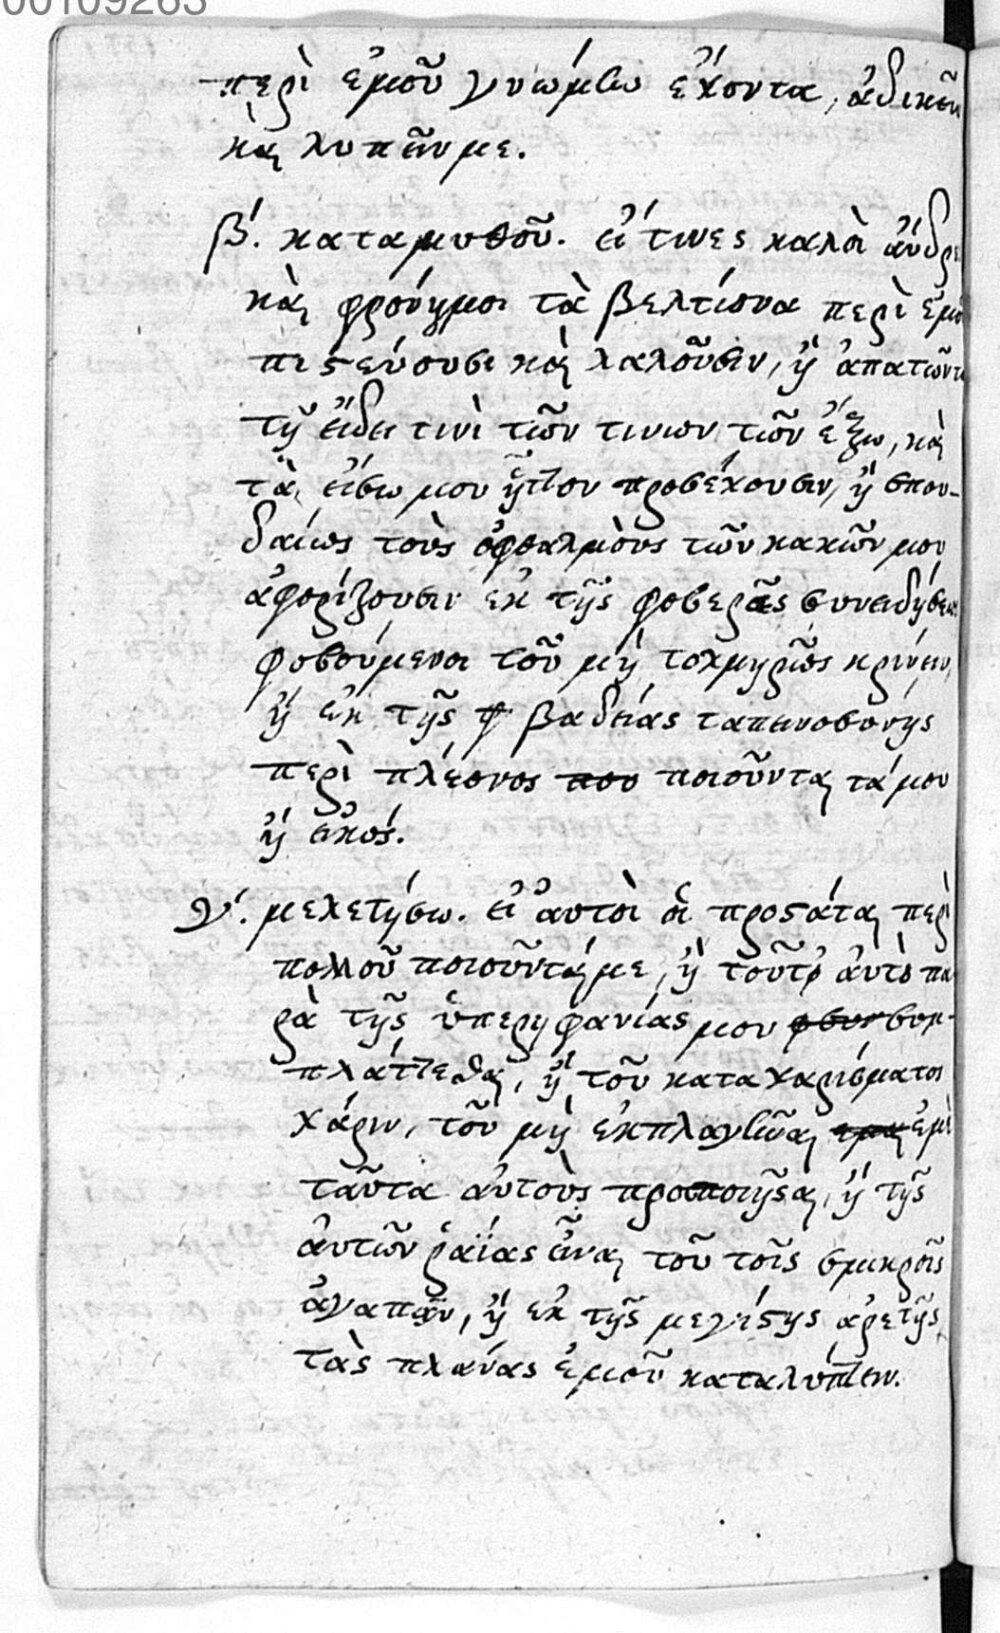 00109263
περὶ ἐμοῦ γνώμην ἔχοντα, ἀδικεῖν
καὶ λυπεῖν με.
β΄. καταμυθοῦ. εἴ τινες καλοὶ ἄνδρε
καὶ φρόνημοι τὰ βελτίονα περὶ ἐμοῦ
πιστεύουσι καὶ λαλοῦσιν, ἢ ἀπατῶντ
τῇ εἴδει τινὶ τῶν τινων τῶν ἔξω, καὶ
τὰ εἴσω μου ἧττον προσέχουσιν, ἢ σπου-
δαίως τοὺς ὀφθαλμοὺς τῶν κακῶν μου
ἀφορίζουσιν ἐκ τῆς φοβερᾶς συνειδήσεως
φοβούμενοι τοῦ μὴ τολμηρῶς κρίνειν,
ἢ ἐκ τῆς βαδείας ταπεινοσόνης
περὶ πλέονος ποιοῦνται τά μου
ἢ εἰκός.
γ΄. μελετήσω. εἰ ἀυτοὶ οἱ προστάται περὶ
πολλοῦ ποιοῦνταί με, ἢ τοῦτο ἀυτὸ πα
ρὰ τῆς ὑπερηφανίας μου συμ-
πλάττεθαι, ἢ τοῦ καταχαρίσματοσ
χάριν, τοῦ μὴ ἐκπλαγῆναι ἐμὶ
ταῦτα ἀυτοὺς προσποιῆσαι, ἢ τῆς
ἀυτῶν ῥαΐας εἶναι τοῦ τοῖς σμικροῖς
ἀγαπᾷν, ἢ ἐκ τῆς μεγίστης ἀρετῆς
τὰς πλάνας ἐμοῦ καταλύπτειν.